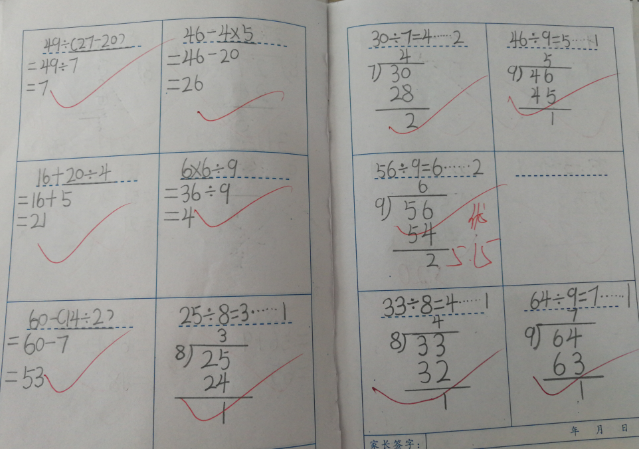 49÷(27-20)
=49÷7
=7
46-4×5
=46-20
=26
16+20÷4
=16+5
=21
6×6÷9
=36÷9
=4
60-(14÷2)
=60-7
=53
25÷8=3……1
3
8)25
24
1
30÷7=4……2
4
7)30
28
2
46÷9=5……1
5
9)46
45
1
56÷9=6……2
6
9)56
54
2
5.15
33÷8=4……1
4
8)33
32
1
64÷9=7……1
7
9)64
63
1
家长签字:
年 月 日